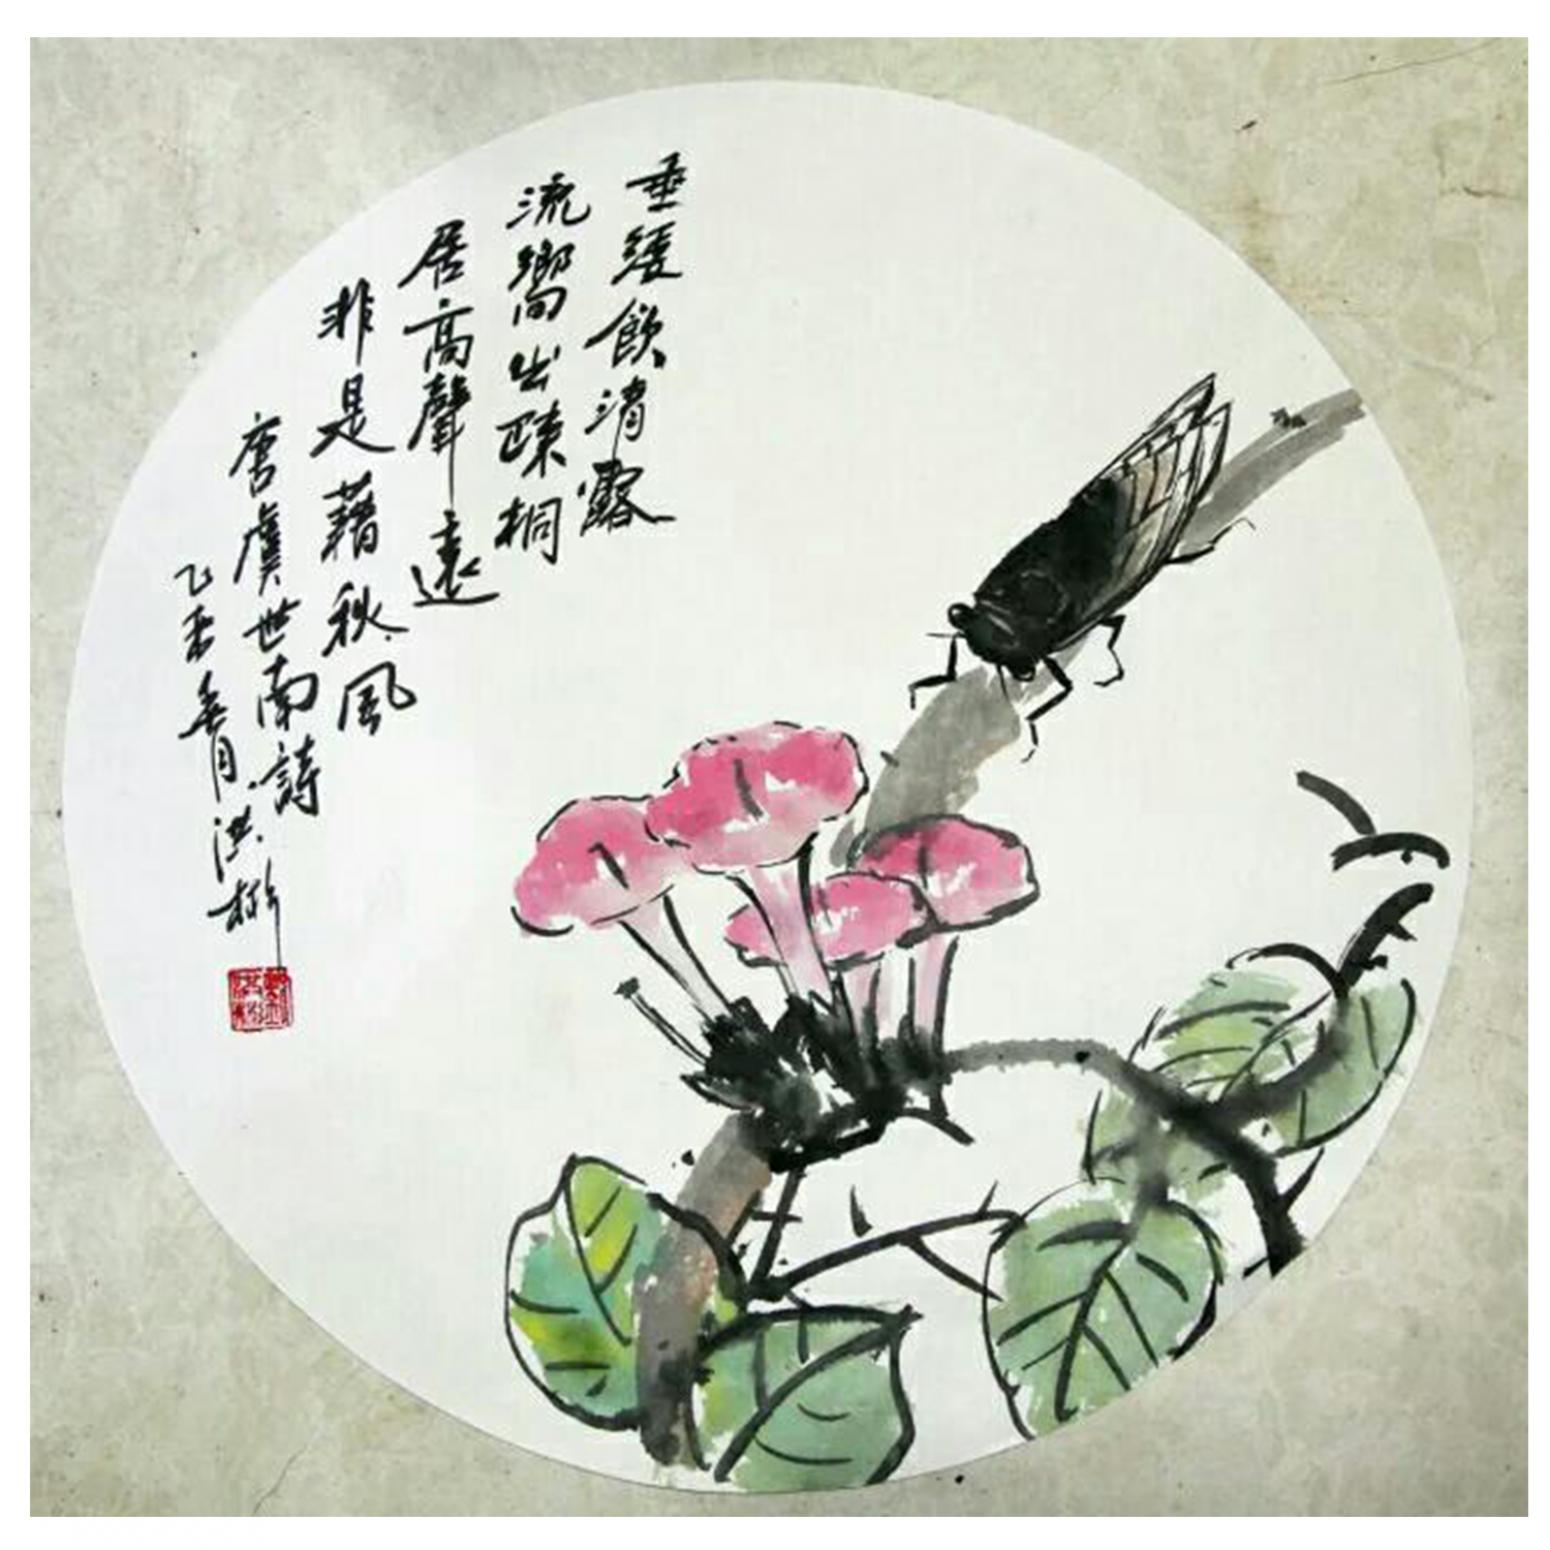 垂緌飲清露
流響出疎桐
居高聲遠
非是藉秋風
唐虞世南詩
乙未春月洪